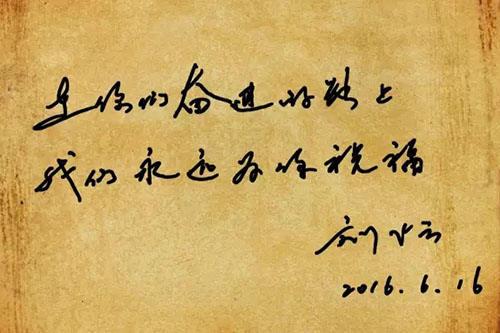 在你们奋进的路上
我们永远为你祝福
2016.6.16